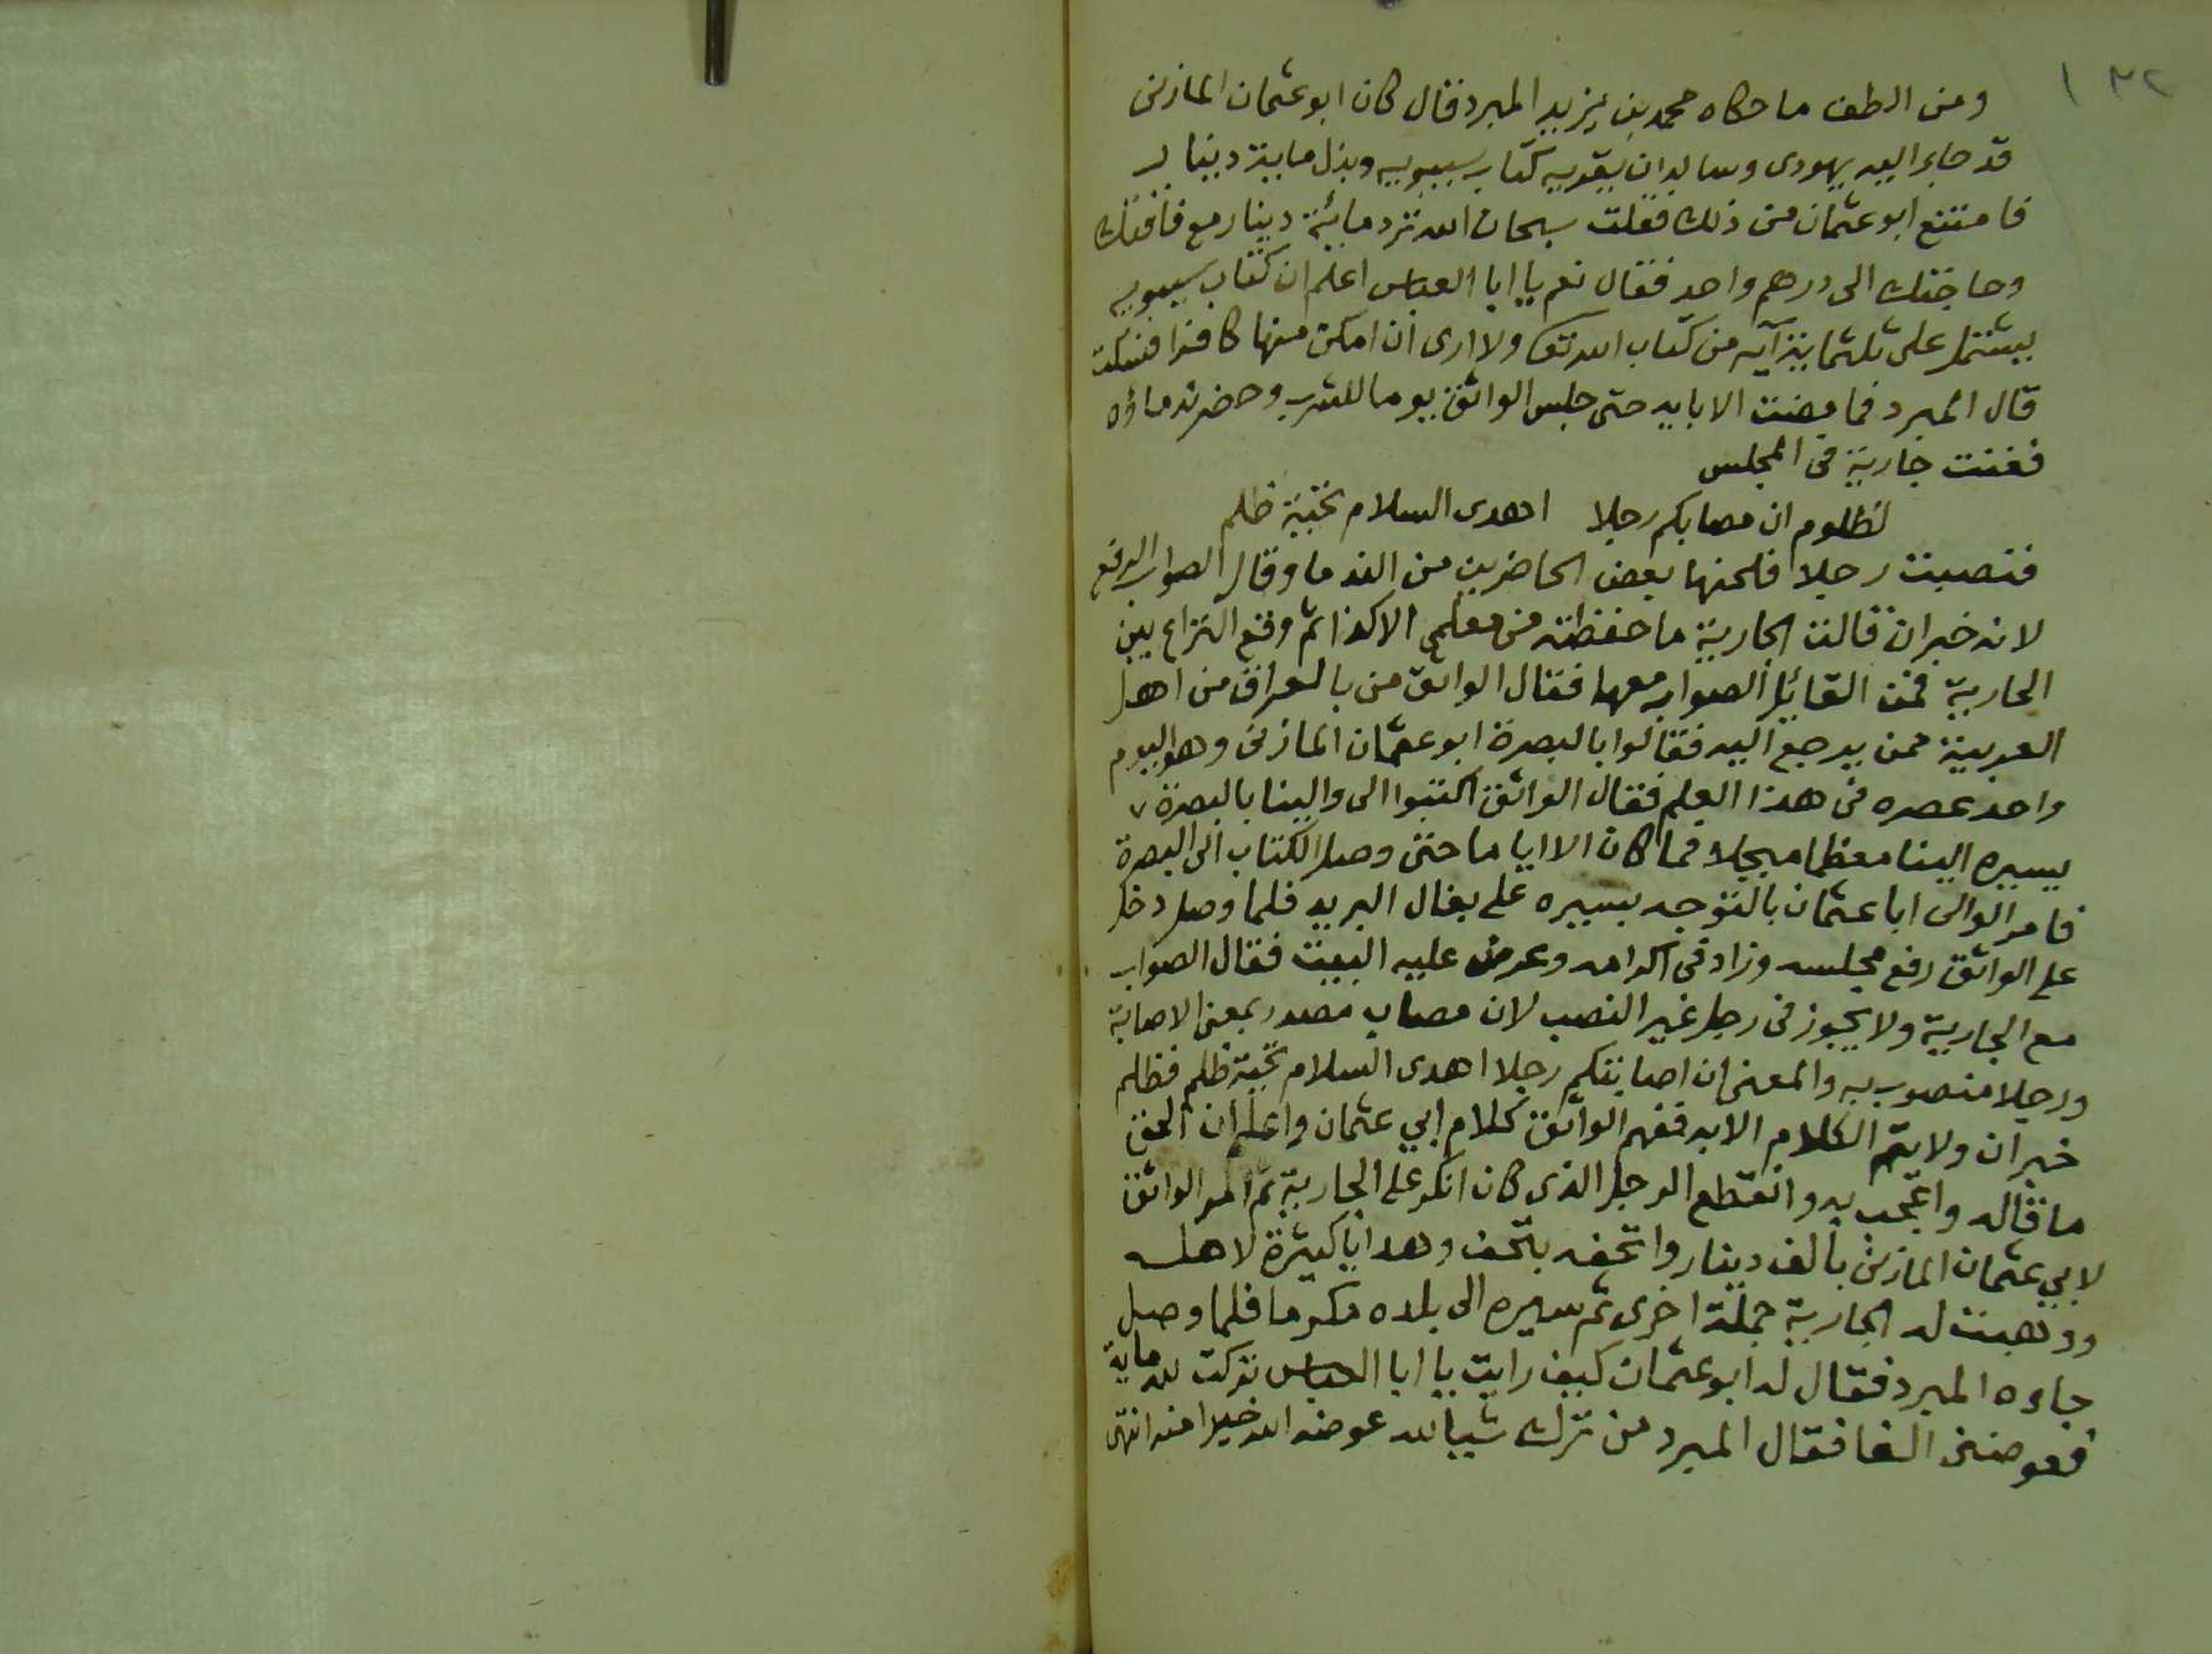 ١٣٢
ومن الطف ما حكاه محمد بن يزيد المبرد قال كان ابو عثمان المازنى
قد جاء اليه يهودى وساله ان يقريه كتاب سيبويه وبذل ماية دينار
فامتنع ابو عثمان من ذلك فقلت سبحان الله ترد مائة دينار مع فاقتك
وحاجتك الى درهم واحد فقال نعم يا ابا العباس اعلم ان كتاب سيبويه
يشتمل على ثلثماية آيه من كتاب الله تعا ولا ارى ان امكن منها كافرا فسكت
قال المبرد فما مضت الا ايام حتى جلس الواثق يوما للشرب وحضر ندماؤه
فغنت جارية فى المجلس
لظلوم ان مصابكم رجلا اهدى السلام تحية ظلم
فنصبت رجلا فلحنها بعض الحاضرين من الندما وقال الصواب الرفع
لانه خبر ان قالت الجارية ما حفظته من معلمى الا كذا ثم وقع النزاع بين
الجارية فمن القائل الصواب معها فقال الواثق من بالعراق من اهل
العربية ممن يرجع اليه فقالوا بالبصرة ابو عثمان المازنى وهو اليوم
واحد عصره فى هذا العلم فقال الواثق اكتبوا الى والينا بالبصرة
يسيره الينا معظما مبجلا فما كان الا اياما حتى وصل الكتاب الى البصرة
فامر الوالى ابا عثمان بالتوجه بسيره على بغال البريد فلما وصل دخل
على الواثق رفع مجلسه وزاد فى اكرامه وعرض عليه البيت فقال الصواب
مع الجارية ولا يجوز فى رجل غير النصب لان مصاب مصدر بمعنى الاصابة
ورجلا منصوب به والمعنى ان اصابتكم رجلا اهدى السلام تحية ظلم فظلم
خبر ان ولا يتم الكلام الا به ففهم الواثق كلام ابي عثمان واعلم ان الحق
ما قاله واعجب به وانقطع الرجل الذى كان انكر على الجارية ثم امر الواثق
لابي عثمان المازنى بالف دينار واتحفه بتحف وهدايا كثيرة لاهله
ووهبت له الجارية جملة اخرى ثم سيره الى بلاده مكرما فلما وصل
جاءه المبرد فقال له ابو عثمان كيف رايت يا ابا العباس تركت لله ماية
فعوضنى الفا فقال المبرد من ترك شيا لله عوضه الله خيرا منه انتهى